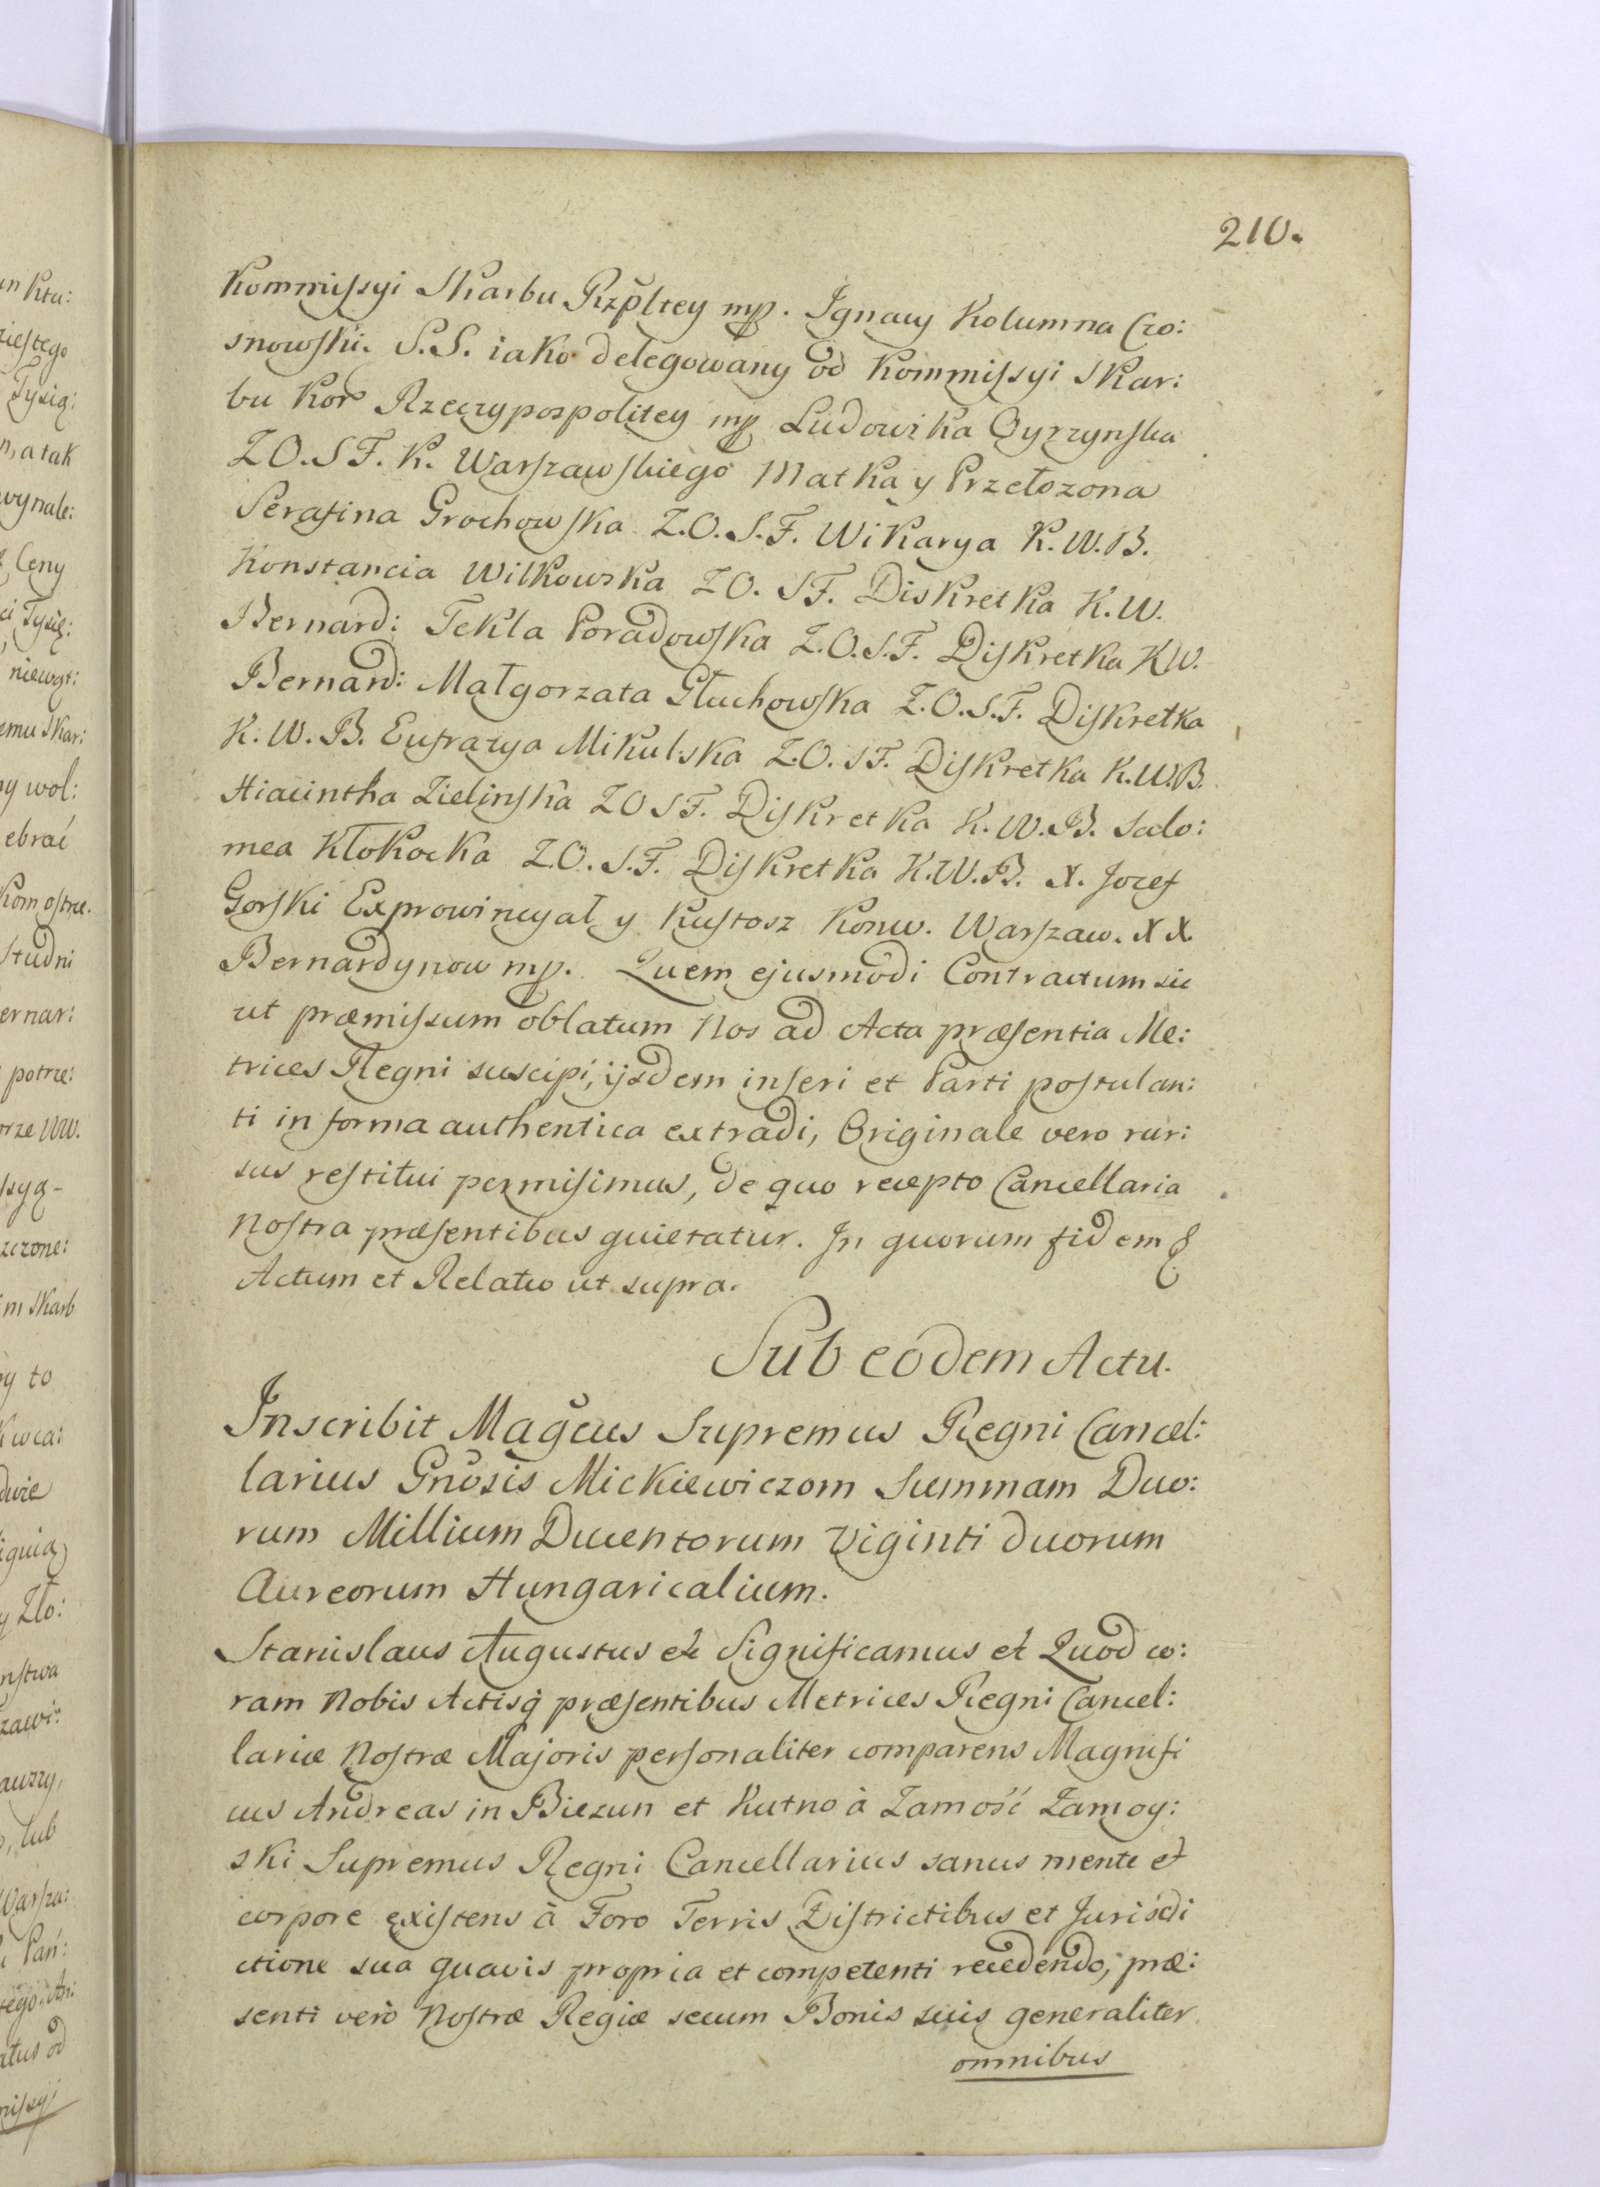 210.
Kommissyi Skarbu Rzpltey mp. Ignacy Kolumna Czo:
snowski. S.S. iako delegowany od Kommissyi Skar:
bu Kor Rzeczypospolitey mp Ludowika Oyrzynska
Z O. S F. K. Warszawskiego Matka y Przełozona
Serafina Grochowska Z. O. S. F. Wikarya K. W. B.
Konstancia Wilkowska Z O. S F. Diskretka K. W.
Bernard: Tekla Poradowska Z. O. S. F. Diskretka K W.
Bernard: Małgorzata Głuchowska Z. O. S. F. Diskretka
K. W. B. Eufrazya Mikulska Z. O. S F. Diskretka K. W. B.
Hiacintha Zielinska Z O S F. Diskretka K. W. B. Salo:
mea Kłokocka Z. O. S. F. Diskretka K. W. B. X. Jozef
Gorski Exprowincyał y Kustosz Konw. Warszaw. X X.
Bernardynow mp. Quem ejusmodi Contractum sic
ut præmissum oblatum Nos ad Acta præsentia Me:
trices Regni suscipi, ijsdem inseri et Parti postulan:
ti in forma authentica extradi, Originale vero rur:
sus restitui permisimus, de quo recepto Cancellaria
Nostra præsentibus quietatur. In quorum fidem &
Actum et Relatio ut supra.
Sub eodem Actu.
Inscribit Magcus Supremus Regni Cancel:
larius Gnosis Mickiewiczom Summam Duo:
rum Millium Ducentorum Viginti duorum
Aureorum Hungaricalium.
Stanislaus Augustus et Significamus et Quod co:
ram Nobis Actisq præsentibus Metrices Regni Cancel:
lariæ Nostræ Majoris personaliter comparens Magnifi
cus Andreas in Biezun et Kutno à Zamość Zamoy:
ski Supremus Regni Cancellarius sanus mente et
corpore existens à Foro Terris Districtibus et Jurisdi
ctione sua quavis propria et competenti recedendo, præ:
senti verò Nostræ Regiæ secum Bonis suis generaliter
omnibus